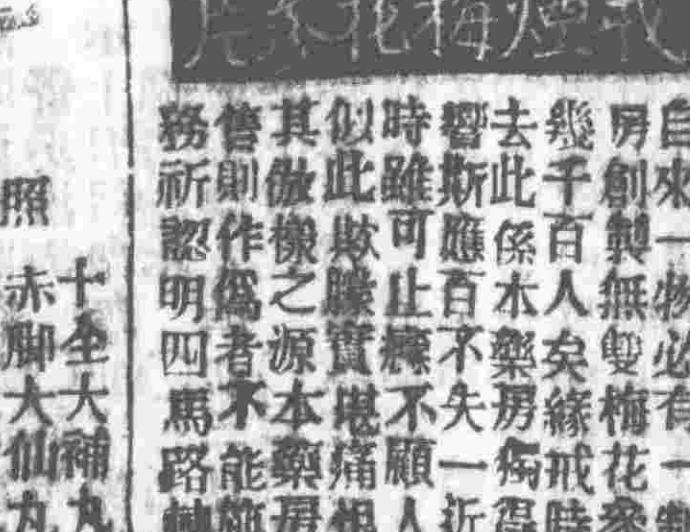 戒煙梅花參片
自來一物必有一制
房創製無雙梅花參
幾千百人矣緣戒時
去此係本藥房獨得
響斯應百不失一近
時雖可止癮不顧人
似此欺朦實堪痛恨
其倣樣之源本藥房
售則作僞者不能施
務祈認明四馬路
照
十全大補丸
赤脚大仙丸